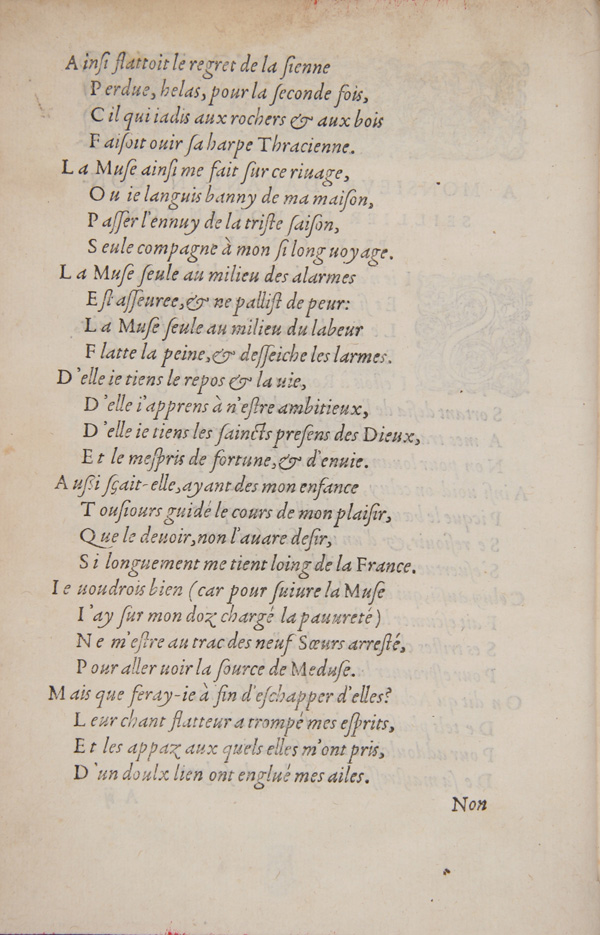 Ainſi flattoit le regret de la ſienne
Perdue, helas, pour la ſeconde fois,
Cil qui iadis aux rochers & aux bois
Faiſoit ouir ſa harpe Thracienne.
La Muſe ainſi me fait ſur ce riuage,
Ou ie languis banny de ma maiſon,
Paſſer l'ennuy de la triſte ſaiſon,
Seule compagne à mon ſi long uoyage.
La Muſe ſeule au milieu des alarmes
Eſt aſſeuree, & ne palliſt de peur:
La Muſe ſeule au milieu du labeur
Flatte la peine, & deſſeiche les larmes.
D'elle ie tiens le repos & la uie,
D'elle i'apprens à n'eſtre ambitieux,
D'elle ie tiens les ſaincts preſens des Dieux,
Et le meſpris de fortune, & d'enuie.
Auſſi ſçait-elle, ayant des mon enfance
Touſiours guidé le cours de mon plaiſir,
Que le deuoir, non l'auare deſir,
Si longuement me tient loing de la France.
Ie uoudrois bien (car pour ſuiure la Muſe
I'ay ſur mon doz chargé la pauureté)
Ne m'eſtre au trac des neuf Sœurs arreſté,
Pour aller uoir la ſource de Meduſe.
Mais que feray-ie à fin d'eſchapper d'elles?
Leur chant flatteur a trompé mes eſprits,
Et les appaz aux quels elles m'ont pris,
D'un doulx lien ont englué mes ailes.
Non